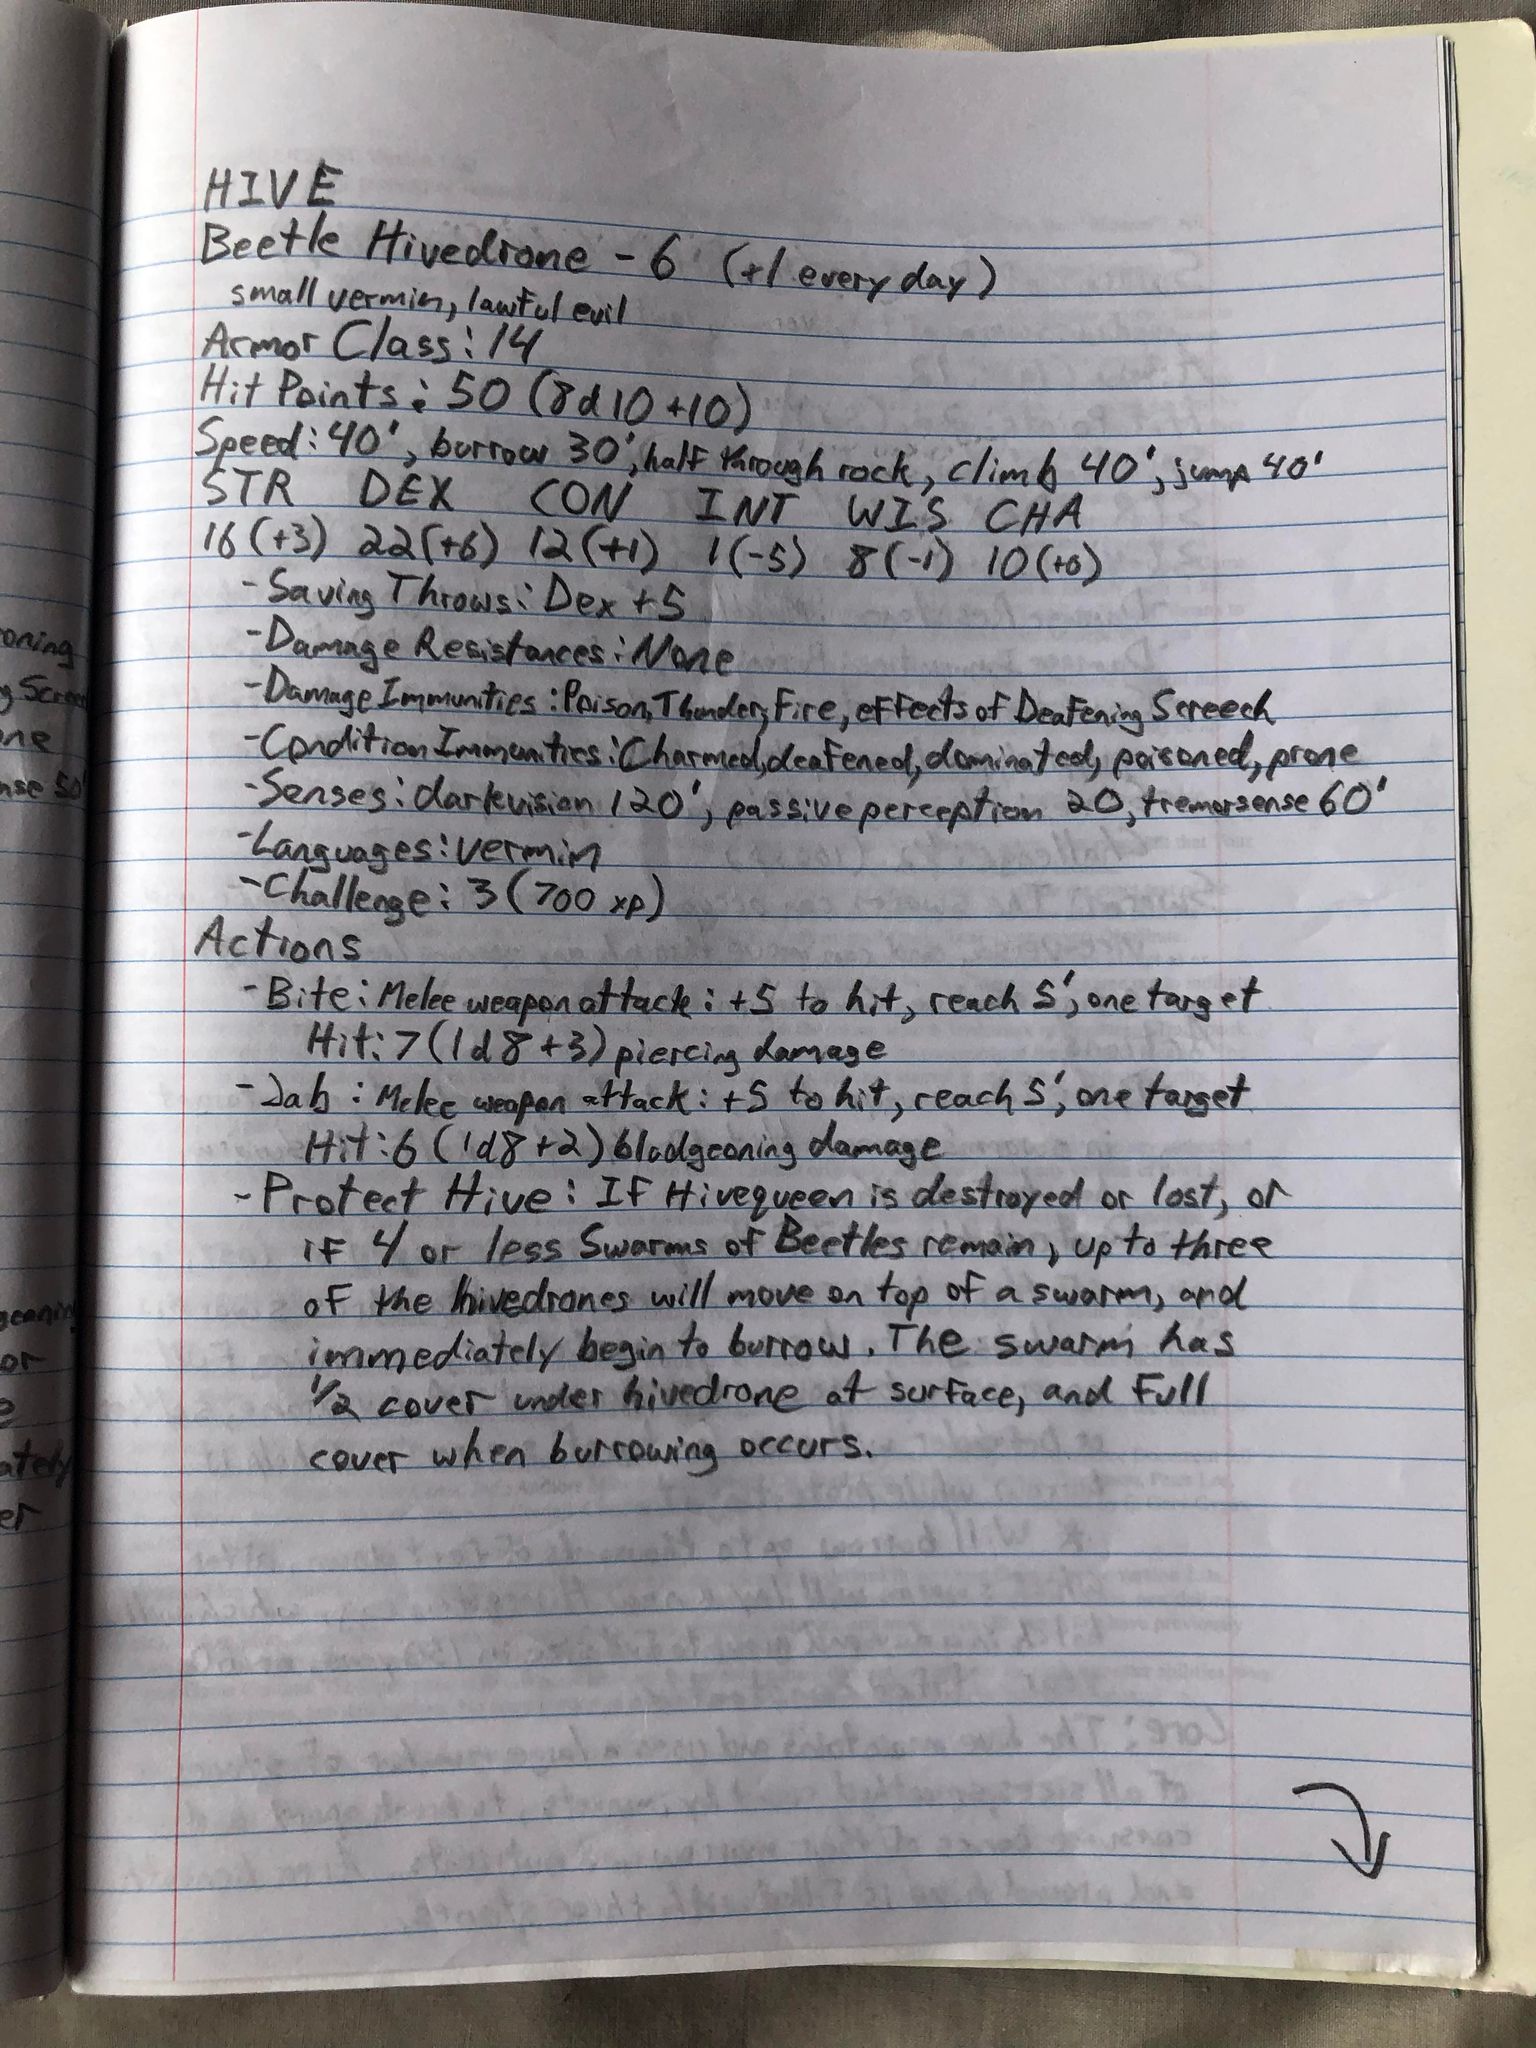 HIVE
Beetle Hivedrone - 6 (+1 every day)
small vermin, lawful evil
Armor Class: 14
Hit Points: 50 (8d10+10)
Speed: 40', burrow 30', half through rock, climb 40', jump 40'
STR DEX CON INT WIS CHA
16 (+3) 22 (+6) 12 (+1) 1 (-5) 8 (-1) 10 (+0)
- Saving Throws: Dex +5
- Damage Resistances: None
- Damage Immunities: Poison, Thunder, Fire, effects of Deafening Screech
- Condition Immunities: Charmed, deafened, dominated, poisoned, prone
- Senses: darkvision 120', passive perception 20, tremorsense 60'
- Languages: vermin
- Challenge: 3 (700 xp)
Actions
- Bite: Melee weapon attack: +5 to hit, reach 5', one target
Hit: 7 (1d8+3) piercing damage
- Jab: Melee weapon attack: +5 to hit, reach 5', one target
Hit: 6 (1d8+2) bludgeoning damage
- Protect Hive: If Hivequeen is destroyed or lost, or
if 4 or less Swarms of Beetles remain, up to three
of the hivedrones will move on top of a swarm, and
immediately begin to burrow. The swarm has
1/2 cover under hivedrone at surface, and full
cover when burrowing occurs.